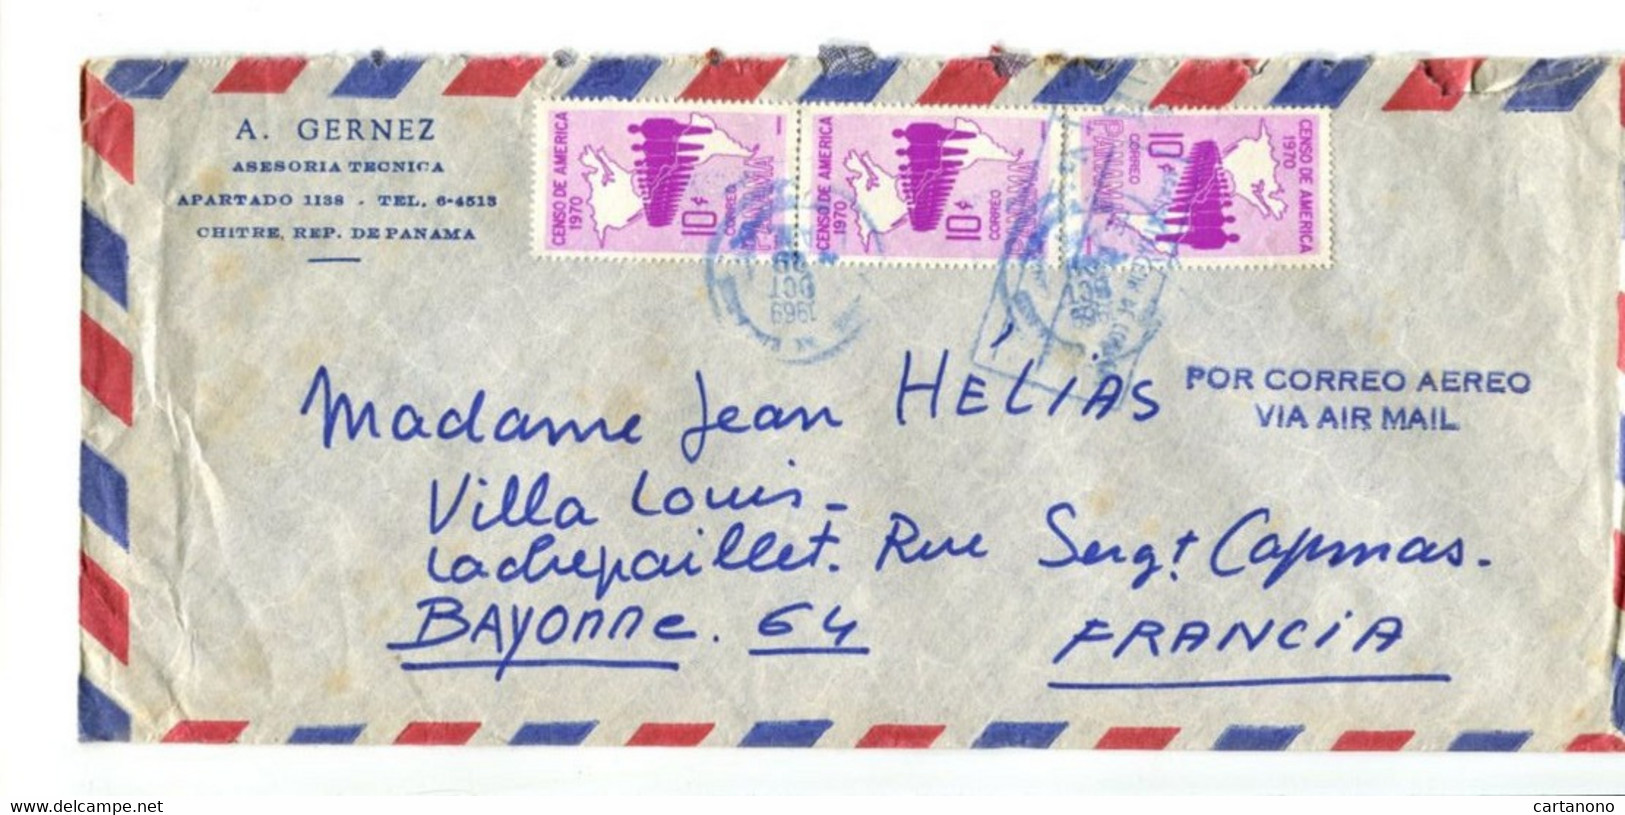 A. GERNEZ
ASESORIA TECNICA
APARTADO 1138 - TEL. 6-4513
CHITRE, REP. DE PANAMA
CENSO DE AMERICA
1970
10¢
CORREO
PANAMA
CENSO DE AMERICA
1970
10¢
CORREO
PANAMA
CENSO DE AMERICA
1970
10¢
CORREO
PANAMA
OCT
1969
POR CORREO AEREO
VIA AIR MAIL
Madame Jean HÉLIAS
Villa Louis -
Lachepaillet. Rue Sergt Capmas.
BAYONNE. 64
FRANCIA
www.delcampe.net
cartanono